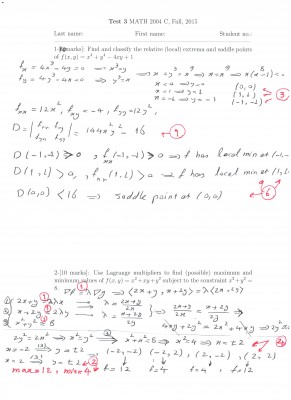 Test 3 MATH 2004 C, Fall, 2015
Last name: First name: Student no.:
1-[10 marks]: Find and classify the relative (local) extrema and saddle points
of f(x, y) = x⁴ + y⁴ − 4xy + 1
fx = 4x³ − 4y = 0 ⇒ x³ = y
fy = 4y³ − 4x = 0 ⇒ y³ = x
x = 0 → y = 0
x = 1 → y = 1
x = −1 → y = −1
(0,0)
(1,1)
(−1,−1)
3
fxx = 12x², fxy = −4, fyy = 12y²,
D = | fxx fxy fyx fyy | = 144x²y² − 16
D(−1,−1) > 0, fxx(−1,−1) > 0 ⇒ f has local min at (−1,−
D(1,1) > 0, fxx(1,1) > 0 ⇒ f has local min at (1,1
D(0,0) < 16 ⇒ saddle point at (0,0)
6
2-[10 marks]: Use Lagrange multipliers to find (possible) maximum and
minimum values of f(x, y) = x² + xy + y² subject to the constraint x² + y² =
∇f = λ∇g ⇒ ⟨2x+y, x+2y⟩ = λ⟨2x, 2y⟩
2x+y = 2λx → λ = (2x+y)/2x
x+2y = 2λy → λ = (x+2y)/2y
⇒ (2x+y)/2x = (x+2y)/2y
x² + y² = 8
4xy + 2y² = 2x² + 4xy ⇒ 2y² = 2x
2y² = 2x² ⇒ x² = y² ⇒ x² + x² = 8 ⇒ x² = 4 ⇒ x = ±2
x = 2 ⇒ y = ±2
x = −2 ⇒ y = ±2
(−2,−2) (−2,2), (2,−2), (2,2)
max = 12, min = 4
f = 12 f = 4 f = 4, f = 12